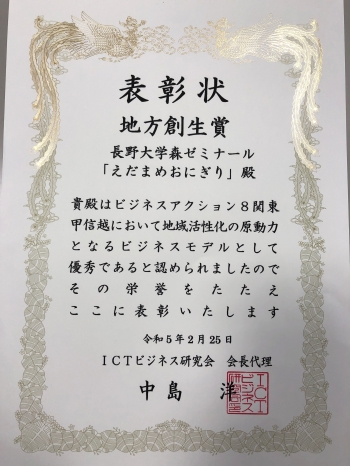 表彰状
地方創生賞
長野大学森ゼミナール
「えだまめおにぎり」殿
貴殿はビジネスアクション8関東
甲信越において地域活性化の原動力
となるビジネスモデルとして
優秀であると認められましたので
その栄誉をたたえ
ここに表彰いたします
令和5年2月25日
ICTビジネス研究会 会長代理
中島 洋
ICT
ビジネス
研究会